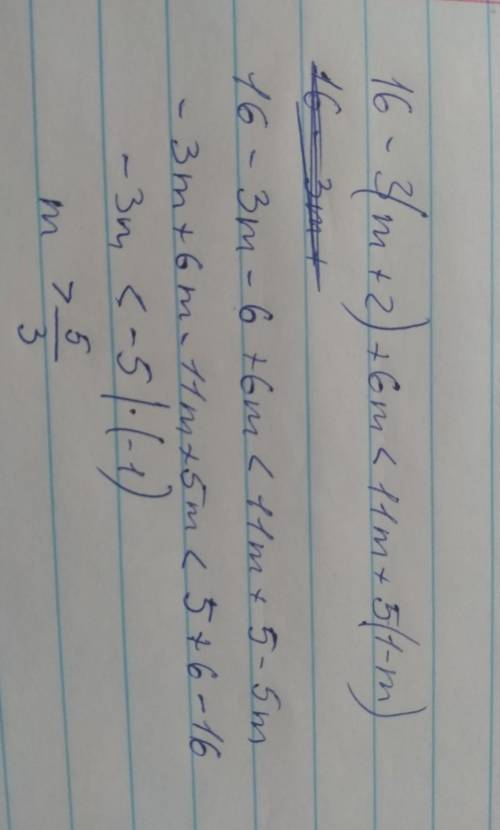 16 - 3(m + 2) + 6m < 11m + 5(1-m)
16 - 3m +
16 - 3m - 6 + 6m < 11m + 5 - 5m
- 3m + 6m - 11m + 5m < 5 + 6 - 16
- 3m < -5 | · (-1)
m > 5/3